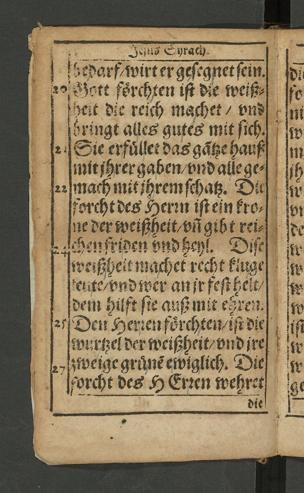 Jesus Syrach.
bedarf/wirt er gesegnet sein.
20 Gott förchten ist die weiß-
heit die reich machet / vnd
bringt alles gutes mit sich.
21 Sie erfüllet das gãtze hauß
mit jhrer gaben/ vnd alle ge-
22 mach mit jhrem schatz. Die
forcht des Herrn ist ein kro-
ne der weißheit/ vñ gibt rei-
24 chen friden vnd heyl. Dise
weißheit machet recht kluge
leute/ vnd wer an jr fest helt/
dem hilft sie auß mit ehren.
25 Den Herren förchten/ ist die
wurtzel der weißheit/ vnd jre
zweige grünẽ ewiglich. Die
27 forcht des HErren wehret
die